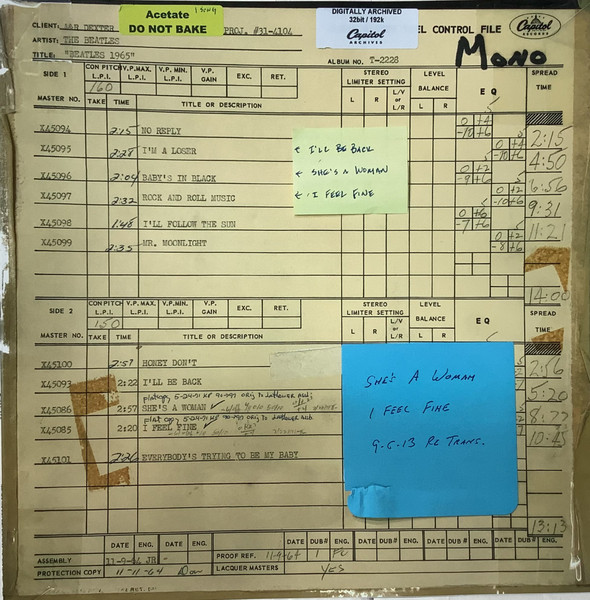 Acetate
DO NOT BAKE
DIGITALLY ARCHIVED
32bit / 192k
Capitol
ARCHIVES
CLIENT: A&R DEXTER PROJ. #31-4104 EL CONTROL FILE
Capitol
RECORDS
ARTIST: THE BEATLES
TITLE: "BEATLES 1965" ALBUM NO. T-2228
MONO
SIDE 1 CON PITCH L.P.I. V.P.MAX. L.P.I. V.P.MIN. L.P.I. V.P. GAIN EXC. RET. STEREO LIMITER SETTING L R L/V or L/R LEVEL BALANCE L R EQ SPREAD TIME
160
MASTER NO. TAKE TIME TITLE OR DESCRIPTION
X45094 2:15 NO REPLY 0 +4 -10 +6 2:15
X45095 2:28 I'M A LOSER 0 +4 -10 +6 4:50
X45096 2:04 BABY'S IN BLACK 0 +2 -9 +6 6:56
X45097 2:32 ROCK AND ROLL MUSIC 0 +2 -10 +6 9:31
X45098 1:48 I'LL FOLLOW THE SUN 0 +6 -7 +6 11:21
X45099 2:35 MR. MOONLIGHT 0 +2 -8 +6
14:00
← I'LL BE BACK
← SHE'S A WOMAN
← I FEEL FINE
SIDE 2 CON PITCH L.P.I. V.P.MAX. L.P.I. V.P.MIN. L.P.I. V.P. GAIN EXC. RET. STEREO LIMITER SETTING L R L/V or L/R LEVEL BALANCE L R EQ SPREAD TIME
150
MASTER NO. TAKE TIME TITLE OR DESCRIPTION
X45100 2:57 HONEY DON'T 2:56
X45093 2:22 I'LL BE BACK 5:20
flat copy 5-04-91
X45086 2:57 SHE'S A WOMAN
flat copy 5-04-91
X45085 2:20 I FEEL FINE 10:45
X45101 2:26 EVERYBODY'S TRYING TO BE MY BABY
13:13
SHE'S A WOMAN
I FEEL FINE
9-6-13 RE TRANS.
DATE ENG. DATE ENG. DATE DUB# ENG. DATE DUB# ENG. DATE DUB# ENG.
ASSEMBLY 11-9-64 JR PROOF REF. 11-9-64 1
PROTECTION COPY 11-11-64 LACQUER MASTERS YES